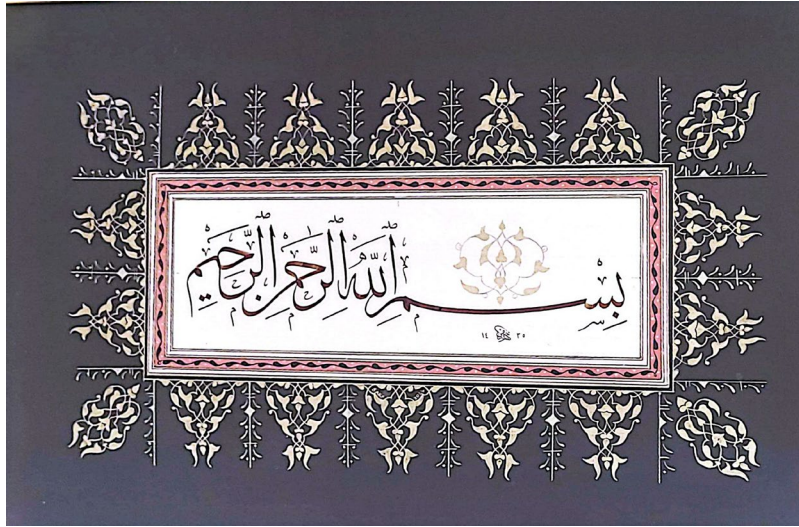 بِسْمِ اللهِ الرَّحْمٰنِ الرَّحِيمِ
١٤ ٣٥